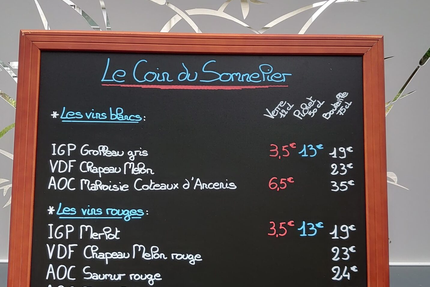 Le Coin du Sommelier
Verre 12cl Pichet 50cl Bouteille 75cl
* Les vins blancs:
IGP Grolleau gris 3,5€ 13€ 19€
VDF Chapeau Melon 23€
AOC Malvoisie Coteaux d'Ancenis 6,5€ 35€
* Les vins rouges:
IGP Merlot 3,5€ 13€ 19€
VDF Chapeau Melon rouge 23€
AOC Saumur rouge 24€